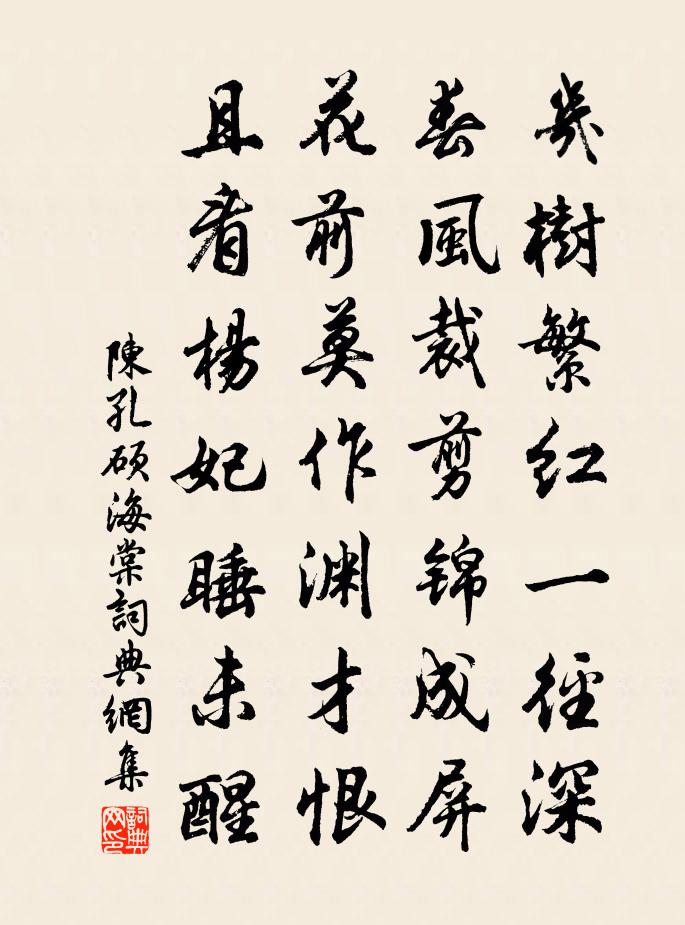 幾樹繁紅一徑深
春風裁剪錦成屏
花前莫作淵才恨
且看楊妃睡未醒
陳孔碩海棠詞典網集
詞典網印